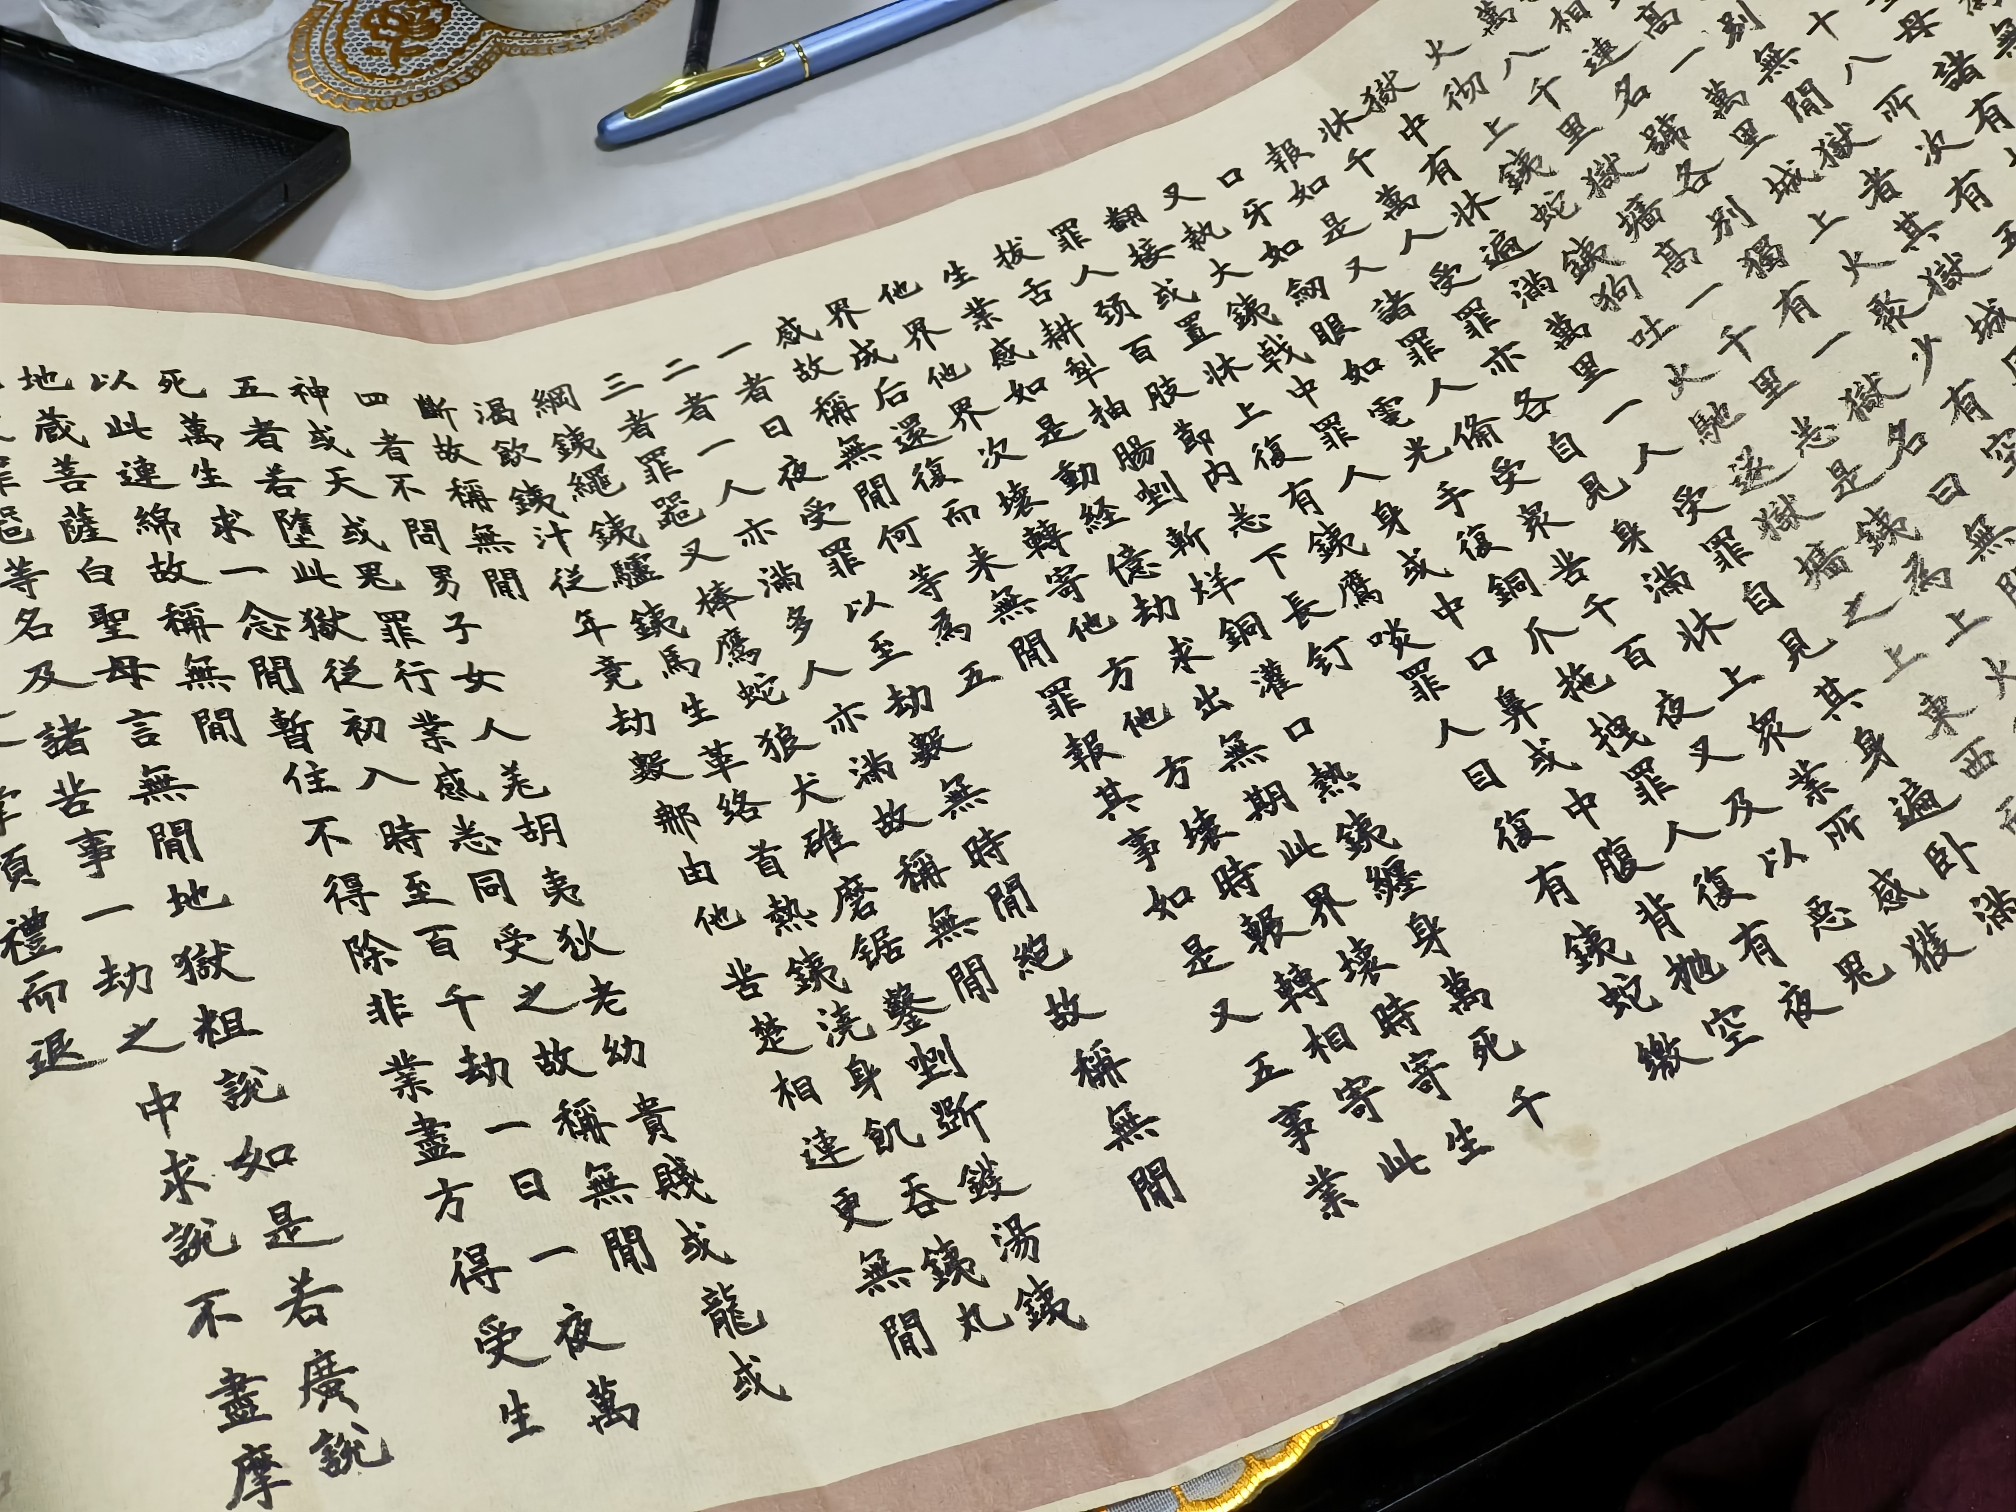 相連名號各別獨有一獄名曰無間
萬八千里獄墻高一千里悉是鐵為上
火徹上鐵蛇鐵狗吐火馳逐獄墻之上東西而
獄中有床遍滿萬里一人受罪自見其身遍卧滿
床千萬人受罪亦各自見身滿床上眾業所感獲
報如是又諸罪人備受眾苦千百夜叉及以惡鬼
口牙如劍眼如電光手復銅爪拖拽罪人復有夜
叉執大鐵戟中罪人身或中口鼻或中腹背拋空
翻接或置床上復有鐵鷹啖罪人目復有鐵蛇繳
罪人頸百肢節內悉下長釘
拔舌耕犁抽腸剉斬烊銅灌口熱鐵纏身萬死千
生業感如是動經億劫求出無期此界壞時寄生
他界他界次壞轉寄他方他方壞時輾轉相寄此
界成后還復而來無間罪報其事如是又五事業
感故稱無間何等為五
一者日夜受罪以至劫數無時間絕故稱無間
二者一人亦滿多人亦滿故稱無間
三者罪器叉棒鷹蛇狼犬碓磨鋸鑿剉斫鑊湯鐵
網鐵繩鐵驢鐵馬生革絡首熱鐵澆身飢吞鐵丸
渴飲鐵汁從年竟劫數那由他苦楚相連更無間
斷故稱無間
四者不問男子女人羌胡夷狄老幼貴賤或龍或
神或天或鬼罪行業感悉同受之故稱無間
五者若墮此獄從初入時至百千劫一日一夜萬
死萬生求一念間暫住不得除非業盡方得受生
以此連綿故稱無間
地藏菩薩白聖母言無間地獄粗說如是若廣說
罪器等名及諸苦事一劫之中求說不盡摩
掌頂禮而退